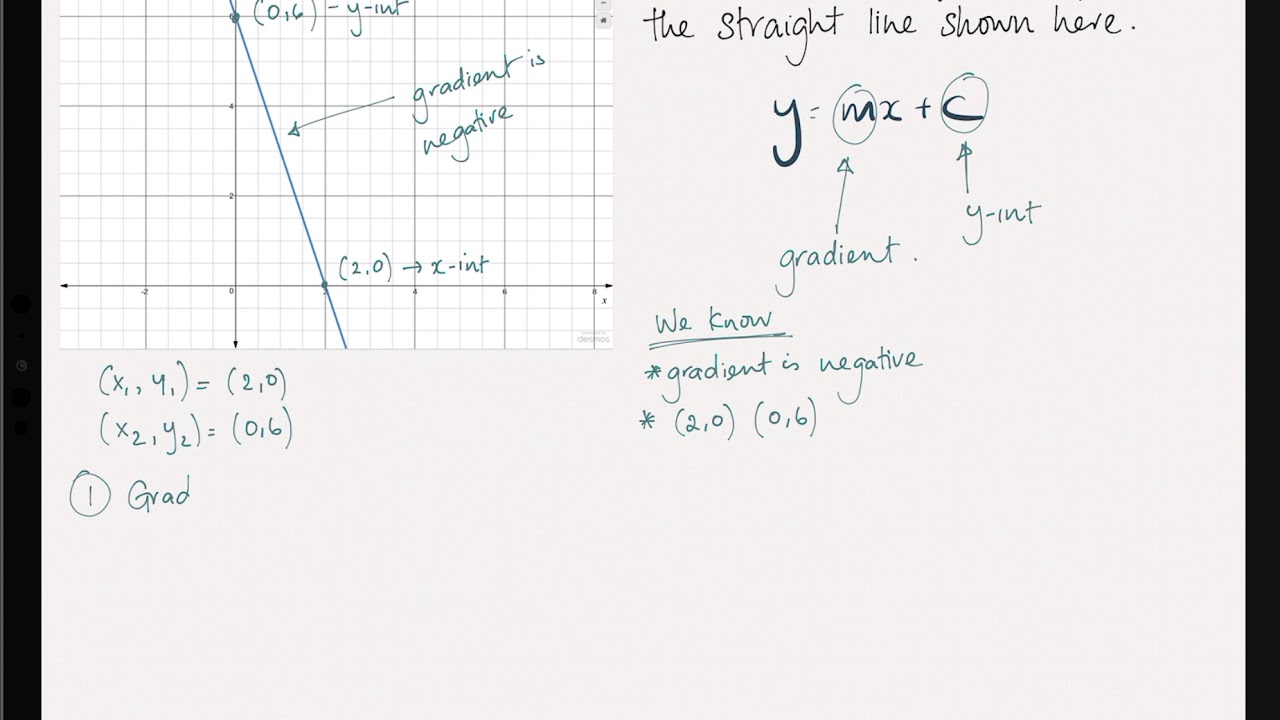 (0,6) - y-int
gradient is
negative
4
2
(2,0) → x-int
-2 0 2 4 6 8
x
powered by
desmos
(x₁, y₁) = (2,0)
(x₂, y₂) = (0,6)
① Grad
the straight line shown here.
y = mx + c
y-int
gradient.
We know
* gradient is negative
* (2,0) (0,6)